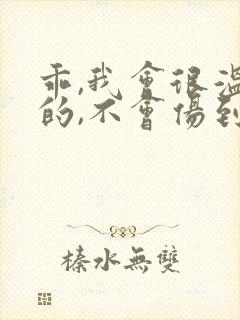 乖,我會很溫
的,不會傷到
榛水無雙